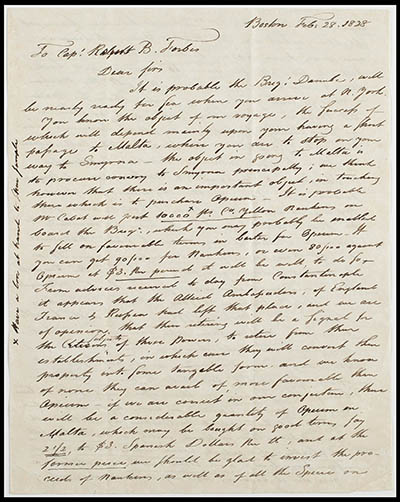 Boston Feb. 28. 1828
To Capt. Robert B. Forbes
Dear Sir,
It is probable the Brig. Danube, will
be nearly ready for sea when you arrive at N. York.
You know the object of our voyage, the success of
which will depend mainly upon your having a short
passage to Malta, where you are to stop on your
way to Smyrna – the object in going to Malta is
to procure convoy to Smyrna principally; we think
however that there is an important object in touching
there which is to purchase Opium – It is probable
Mr Cabot will put 10000 x Co. Yellow Nankins on
board the Brig., which you may probably be enabled
to sell on favourable terms in barter for Opium. If
you can get 90/100 for Nankins, or even 80/100 against
Opium at $3. the pound it will be well to do so –
From advices received to day from Constantinople
it appears that the Allied Ambassadors, of England
France & Russia had left that place, and we are
of opinion, that their retiring will be a signal for
the subjects of those Powers, to retire from their
establishments, in which case they will convert their
property into some tangible form – and we know
of none they can avail of more favourable than
Opium – if we are correct in our conjecture, there
will be a considerable quantity of Opium in
Malta, which may be bought on good terms, say
2 1/2 to $3. Spanish Dollars the lb, and at the
former price, we should be glad to invest the pro-
ceeds of Nankins, as well as of all the Specie on
x Have a box at hand &